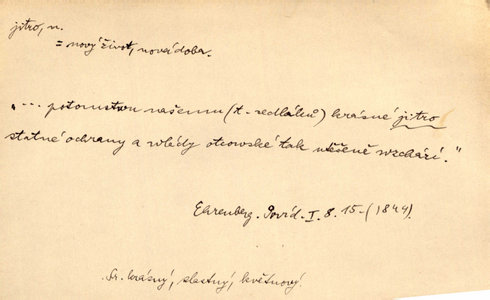 jitro, n.
= nový život, nová doba.
„... potomstvu našemu (t. sedláků) krásné jitro
statné ochrany a vlády otcovské tak utěšeně vzchází."
Ehrenberg. Povíd. I. 8. 15. (1844).
Sr. krásný, slastný, květnový.